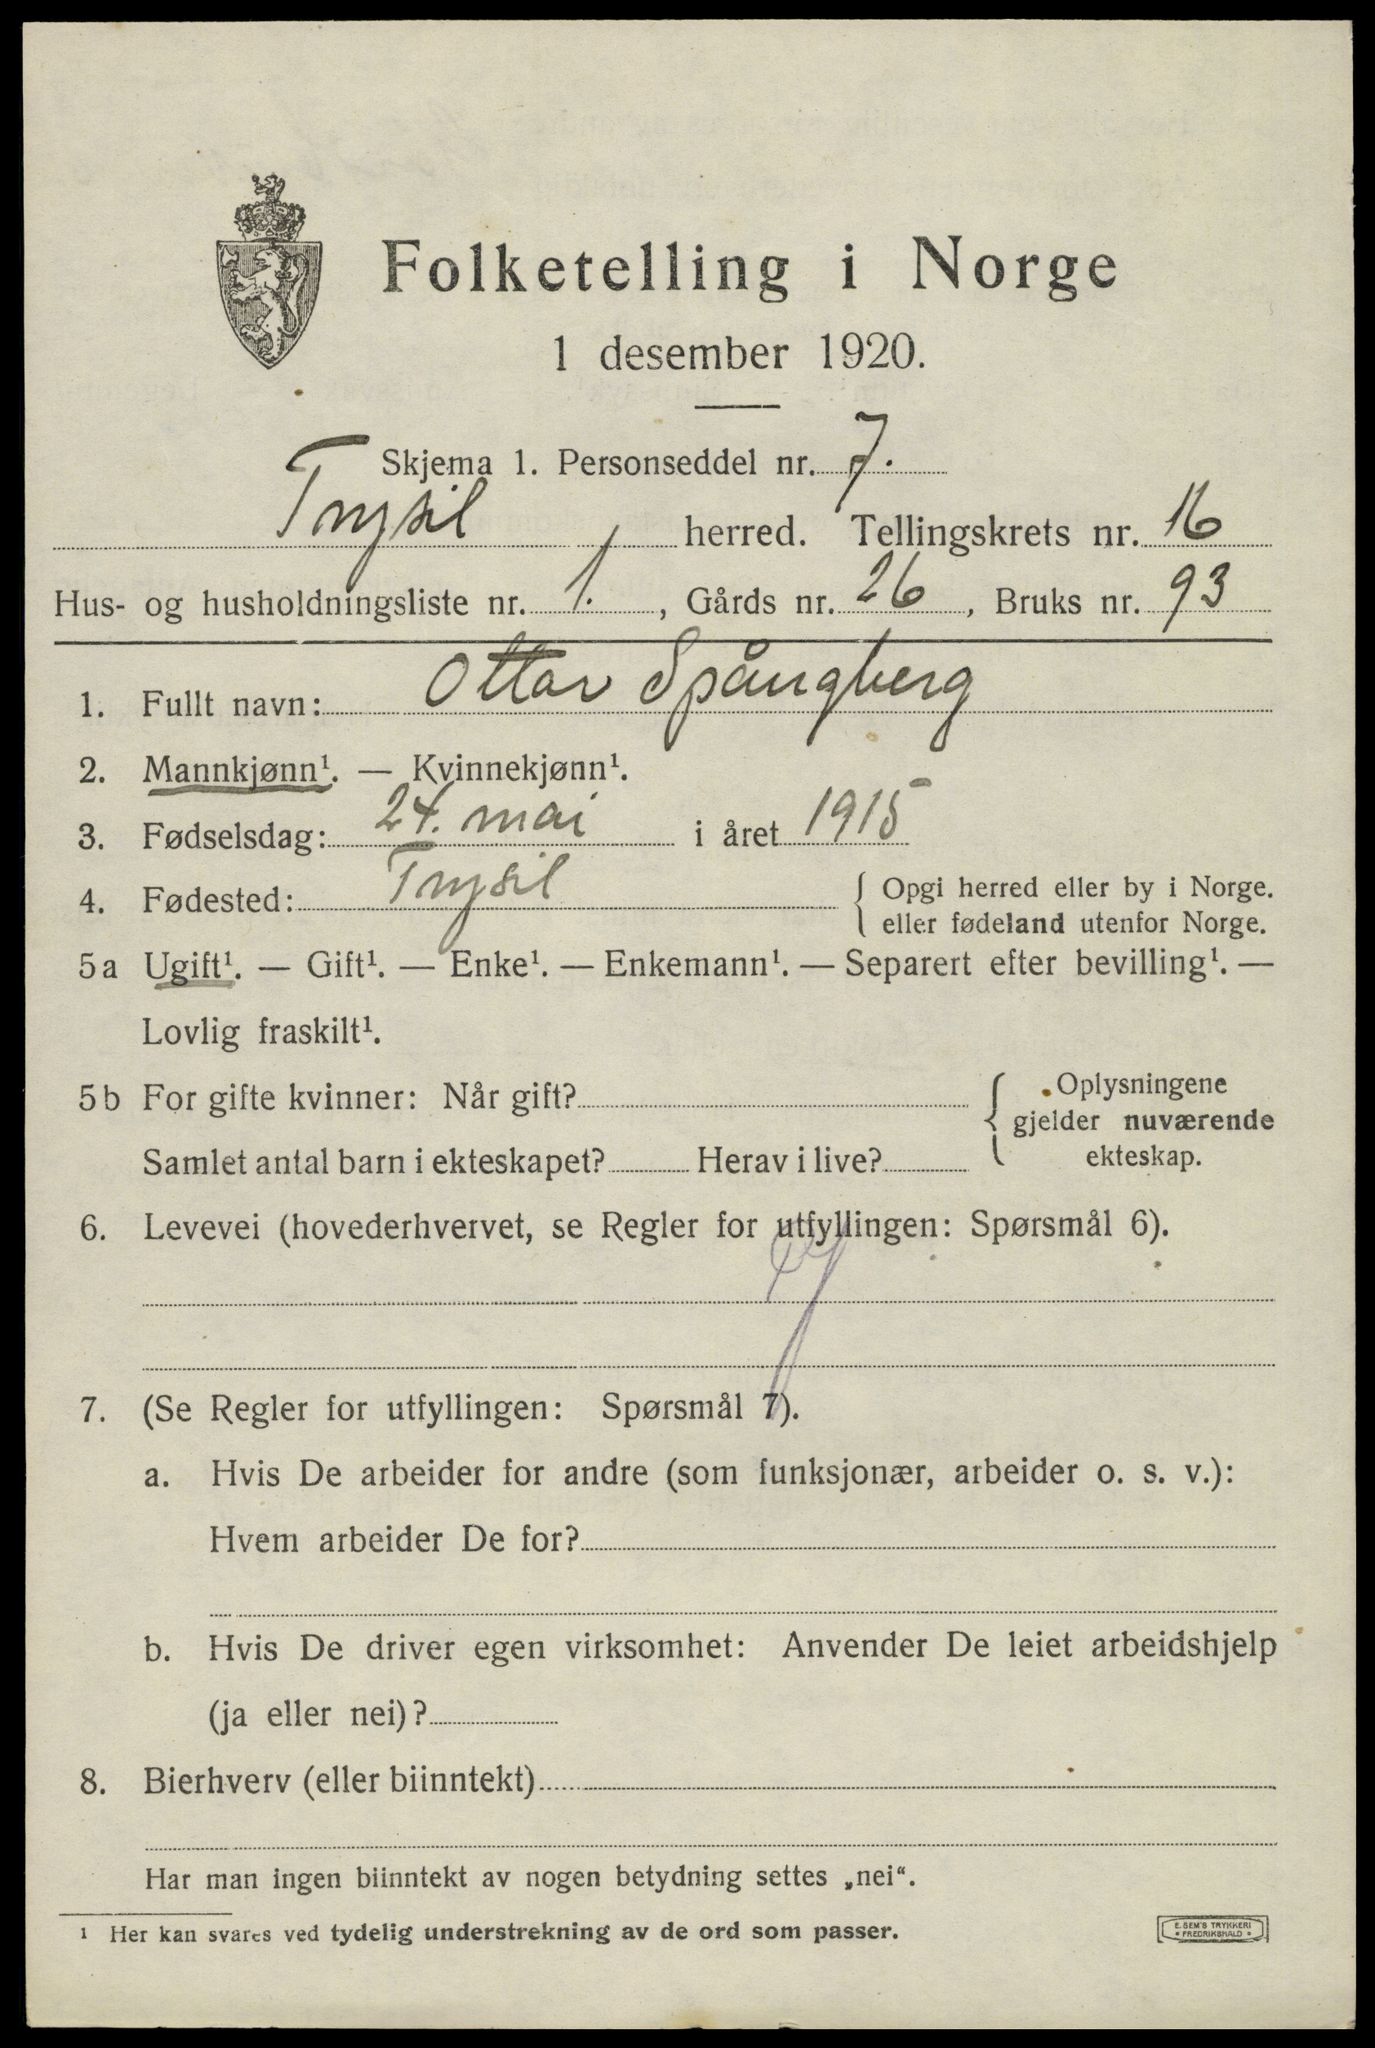 Folketelling i Norge
1 desember 1920.
Skjema 1. Personseddel nr. 7.
Trysil herred. Tellingskrets nr. 16
Hus- og husholdningsliste nr. 1., Gårds nr. 26, Bruks nr. 93
1. Fullt navn: Ottar Spångberg
2. Mannkjønn¹. — Kvinnekjønn¹.
3. Fødselsdag: 24. mai i året 1915
4. Fødested: Trysil { Opgi herred eller by i Norge.
eller fødeland utenfor Norge.
5a Ugift¹. — Gift¹. — Enke¹. — Enkemann¹. — Separert efter bevilling¹. —
Lovlig fraskilt¹.
5b For gifte kvinner: Når gift? { Oplysningene
gjelder nuværende
Samlet antal barn i ekteskapet? Herav i live? ekteskap.
6. Levevei (hovederhvervet, se Regler for utfyllingen: Spørsmål 6).
7. (Se Regler for utfyllingen: Spørsmål 7).
a. Hvis De arbeider for andre (som funksjonær, arbeider o. s. v.):
Hvem arbeider De for?
b. Hvis De driver egen virksomhet: Anvender De leiet arbeidshjelp
(ja eller nei)?
8. Bierhverv (eller biinntekt)
Har man ingen biinntekt av nogen betydning settes „nei“.
¹ Her kan svares ved tydelig understrekning av de ord som passer.
E. SEM'S TRYKKERI
* FREDRIKSHALD *